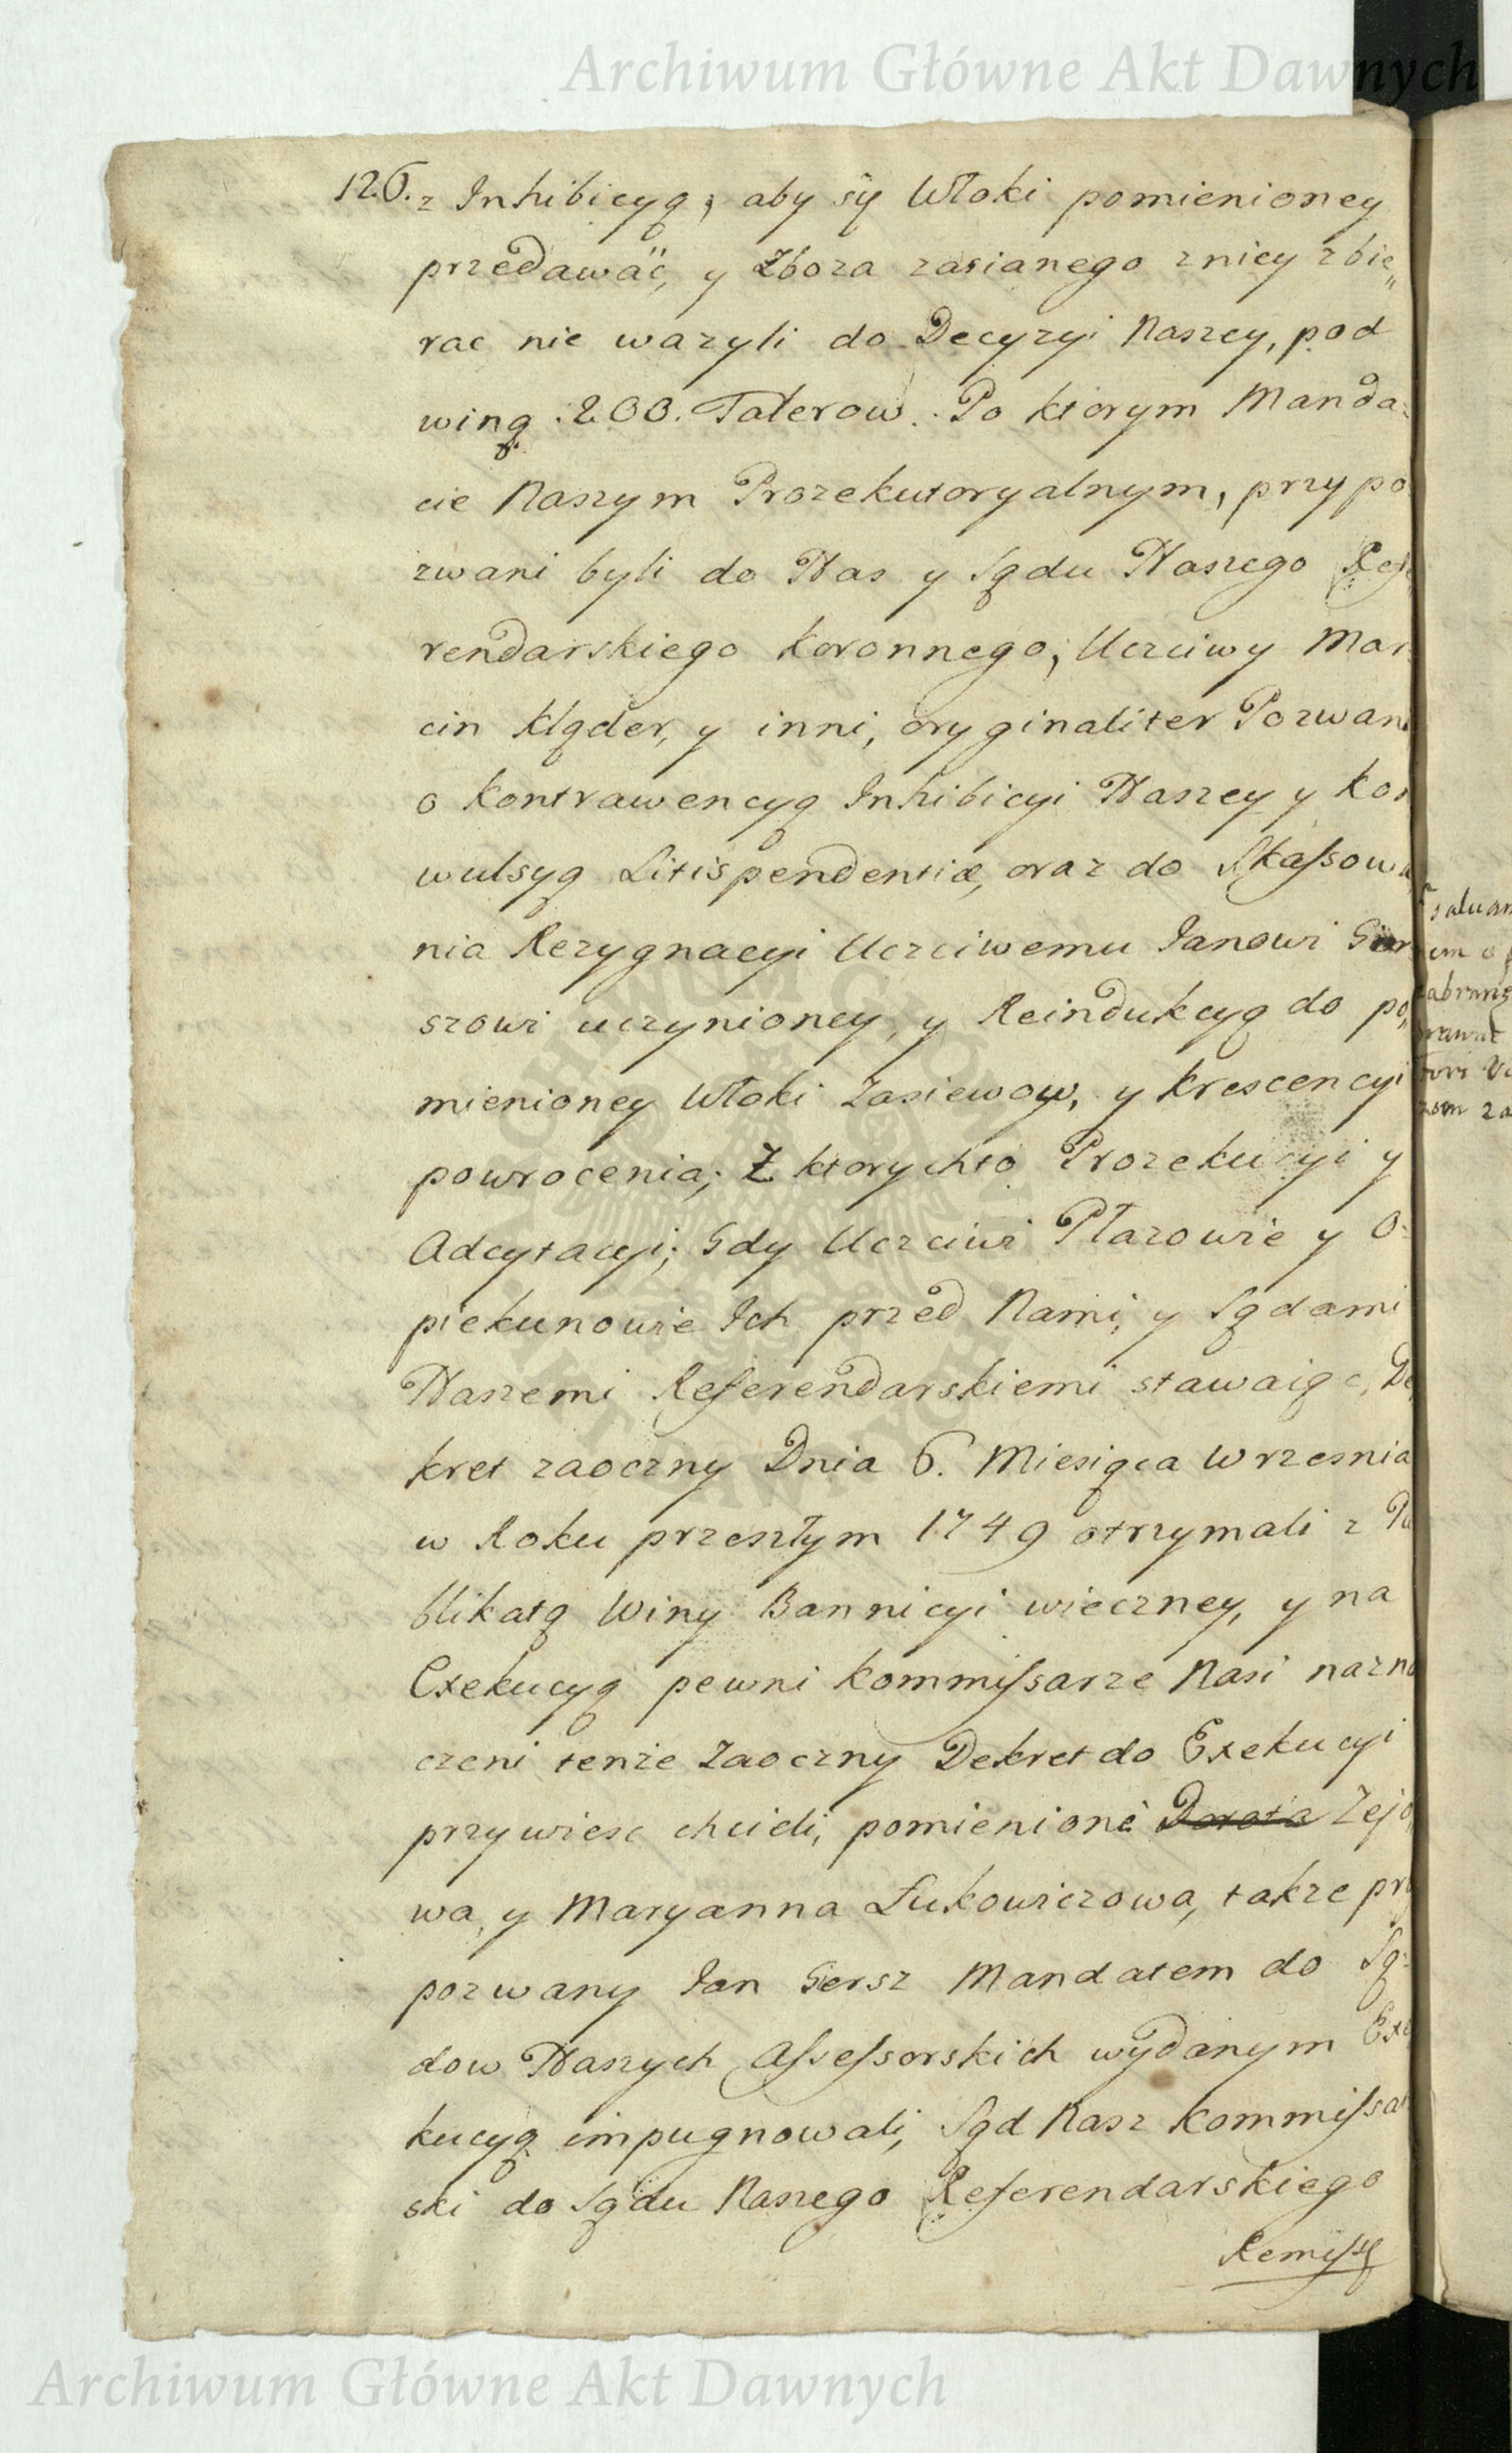 Archiwum Główne Akt Dawnych
126. z Inhibicyą, aby sy Włoki pomienioney
przedawać, y Zboza zasianego znicy zbie„
rac nie wazyli do Decyzyi Naszey, pod
winą 200. Talerow. Po ktorym Manda:
cie Naszym Prozekutoryalnym, przypo
zwani byli do Nas y Sądu Naszego Refe
rendarskiego Koronnego, Uczciwy Mar
cin Kląder, y inni, oryginaliter Pozwani
o Kontrawencyą Inhibicyi Naszey y Kon
wulsyą Litispendentiæ, oraz do Skassowa
nia Rezygnacyi Uczciwemu Janowi Gier
szowi uczynioney, y Reindukcyą do po„
mienioney Włoki Zasiewow, y Krescencyi
powrocenia; Z ktorychto Prozekucyi y
Adcytacyi; Gdy Uczciwi Płazowie y O:
piekunowie Ich przed Nami, y Sądami
Naszemi Referendarskiemi stawaiąc, De
kret zaoczny Dnia 6. Miesiąca Wrzesnia
w Roku przeszłym 1749 otrzymali z Pu
blikatą Winy Bannicyi wieczney, y na
Exekucyą pewni Kommissarze Nasi nazna
czeni tenze Zaoczny Dekret do Exekucyi
przywiesc chcieli, pomienione Dorota Zejo
wa, y Maryanna Łukowiczowa, takze przy
pozwany Jan Giersz Mandatem do Są:
dow Naszych Assessorskich wydanym Exe
kucyą impugnowali, Sąd Nasz Kommissar
ski do Sądu Naszego Referendarskiego
Remissę
saluam
em
abranię
rawac
zom za
Archiwum Główne Akt Dawnych